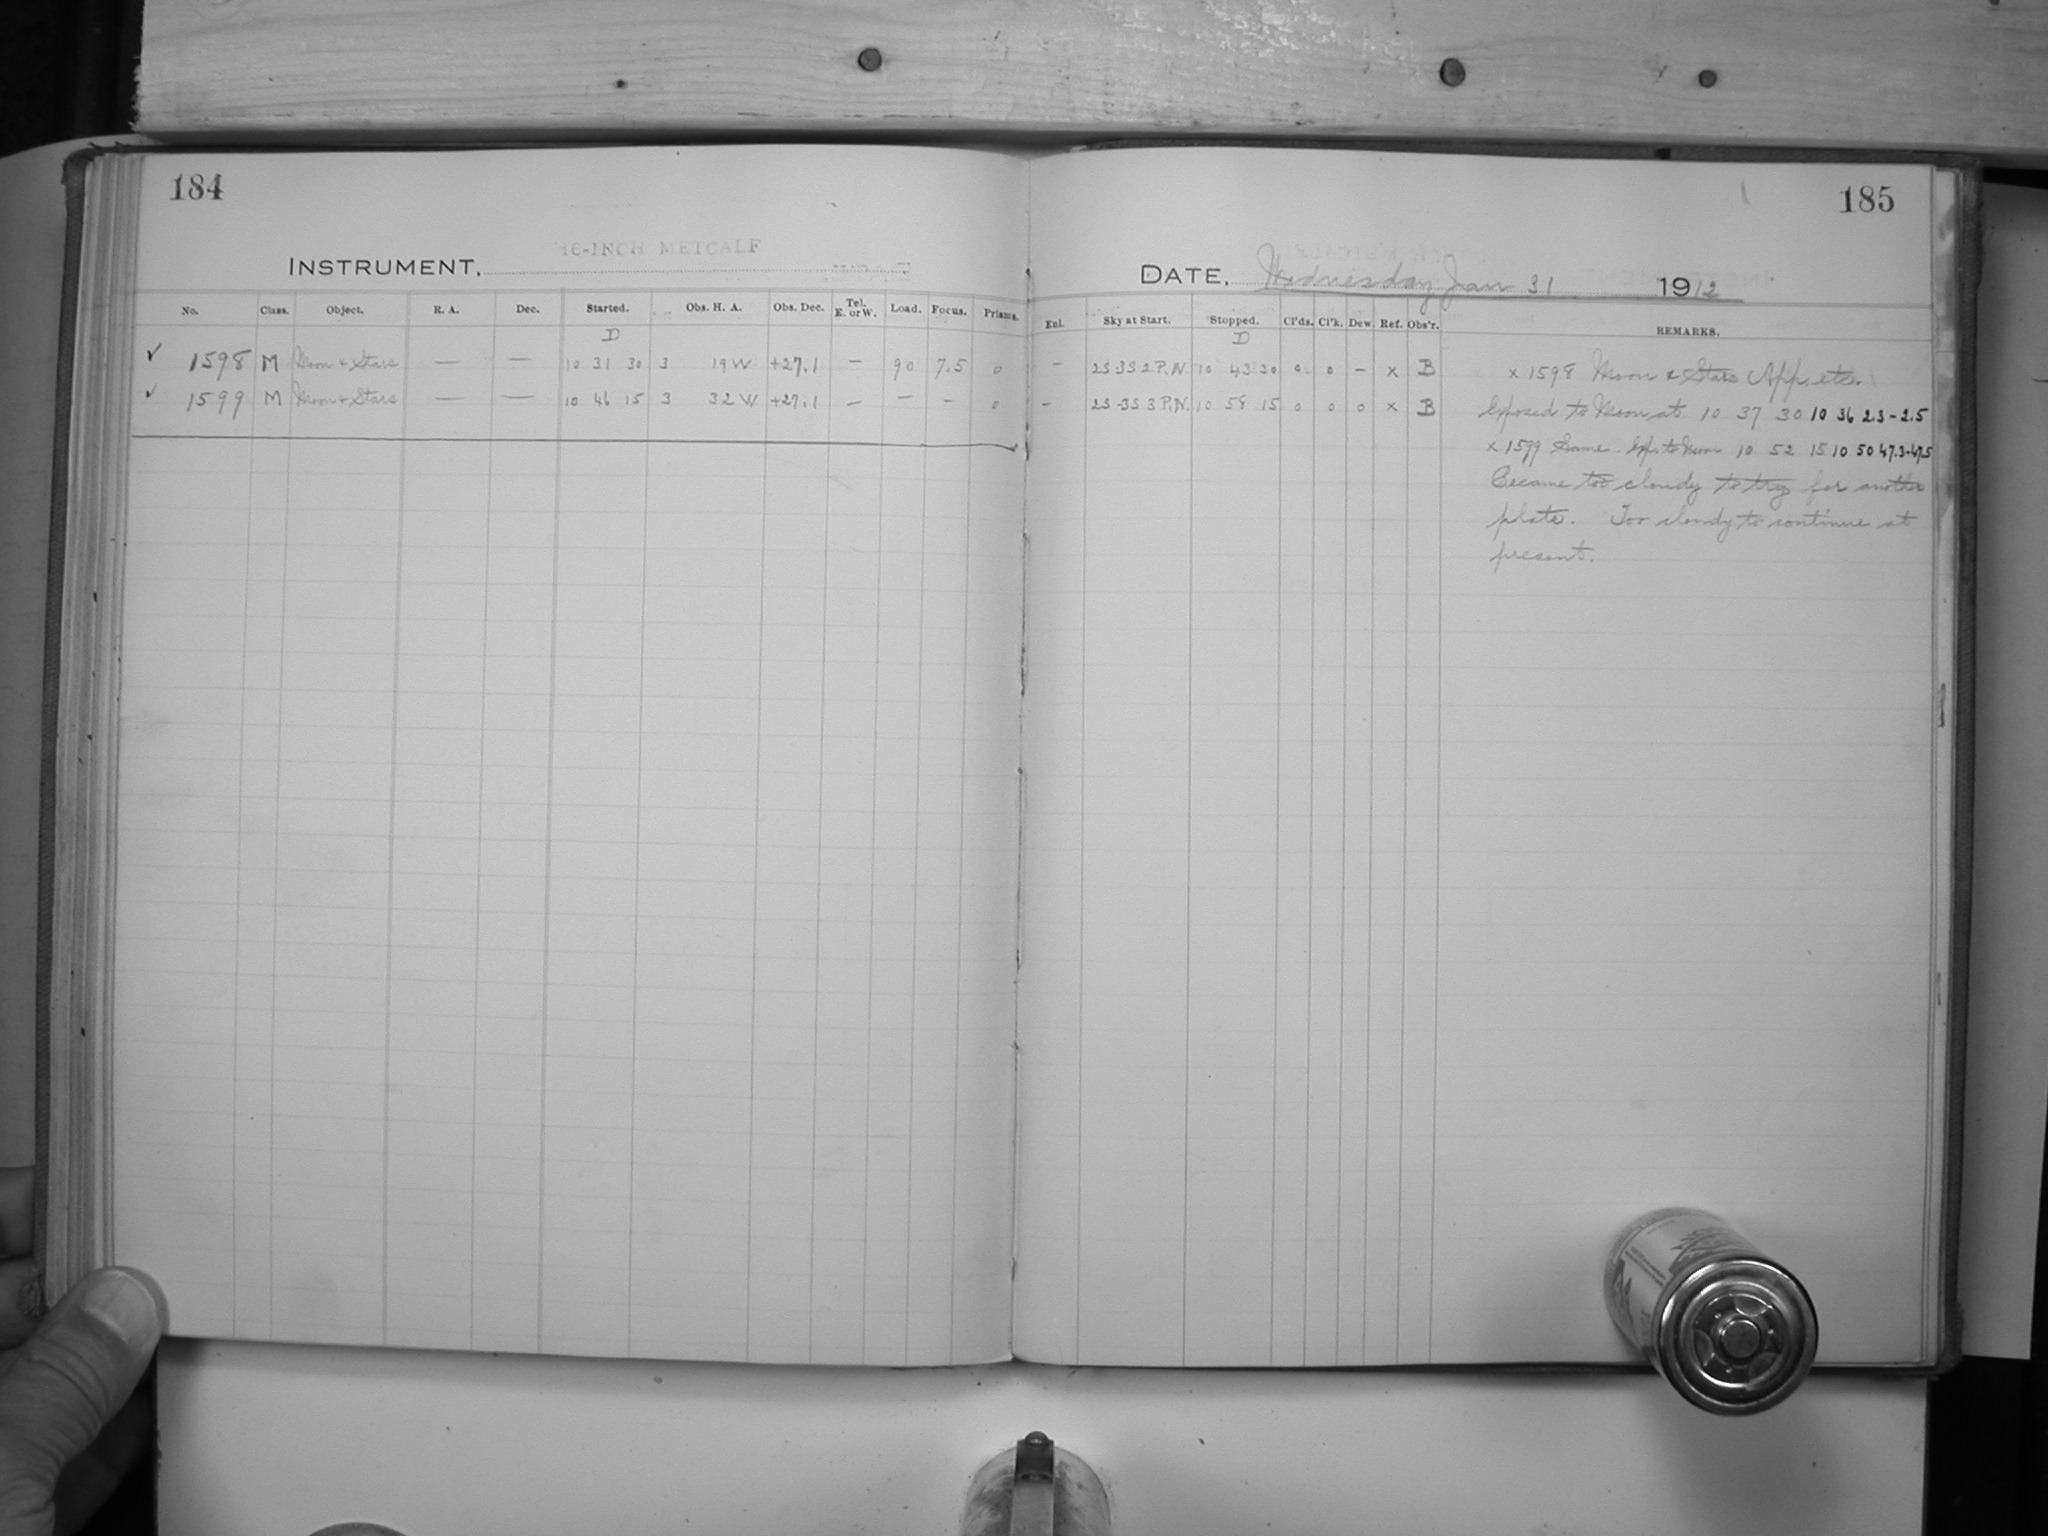 184
16-INCH METCALF
INSTRUMENT,
No. Class. Object. R. A. Dec. Started. Obs. H. A. Obs. Dec. Tel. E. or W. Load. Focus. Prisms.
D
✓ 1598 M Moon & Stars — — 10 31 30 3 19 W +27.1 — 90 7.5 0
✓ 1599 M Moon & Stars — — 10 46 15 3 32 W +27.1 — — — 0
185
DATE, Wednesday Jan 31 1912
Enl. Sky at Start. Stopped. Cl'ds. Cl'k. Dew. Ref. Obs'r. REMARKS.
D
— 2S-3S 2 P.N. 10 43 30 0 0 — x B x 1598 Moon & Stars App. etc.
— 2S-3S 3 P.N. 10 58 15 0 0 0 x B Exposed to Moon at 10 37 30 10 36 2.3-2.5
x 1599 Same - Exp. to Moon 10 52 15 10 50 47.3-47.5
Became too cloudy to try for another
plate. Too cloudy to continue at
present.